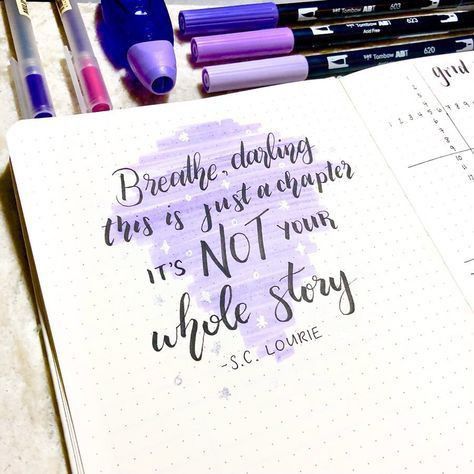 603
Tombow ABT
623
Tombow ABT
Acid Free
620
Tombow ABT
grid
Breathe, darling
this is just a chapter
IT'S NOT YOUR
whole story
-S.C. LOURIE